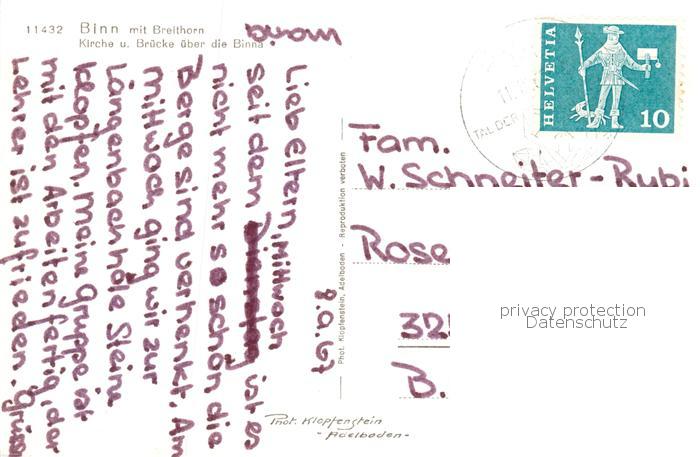 11432 Binn mit Breithorn
Kirche u. Brücke über die Binna
Lieb eltern, Mittwoch
seit dem ist es
nicht mehr so schön die
Berge sind verhenkt. Am
Mittwoch ging wir zur
Längenbach hole Steine
klopfen. meine gruppe ist
mit den Arbeiten fertig, der
Lehrer ist zufrieden. grüss
maria
Phot. Klopfenstein, Adelboden - Reproduktion verboten
HELVETIA
10
TAL DER
Fam.
W. Schneiter-Rubi
Rose
B.
privacy protection
Datenschutz
Phot. Klopfenstein
- Adelboden -